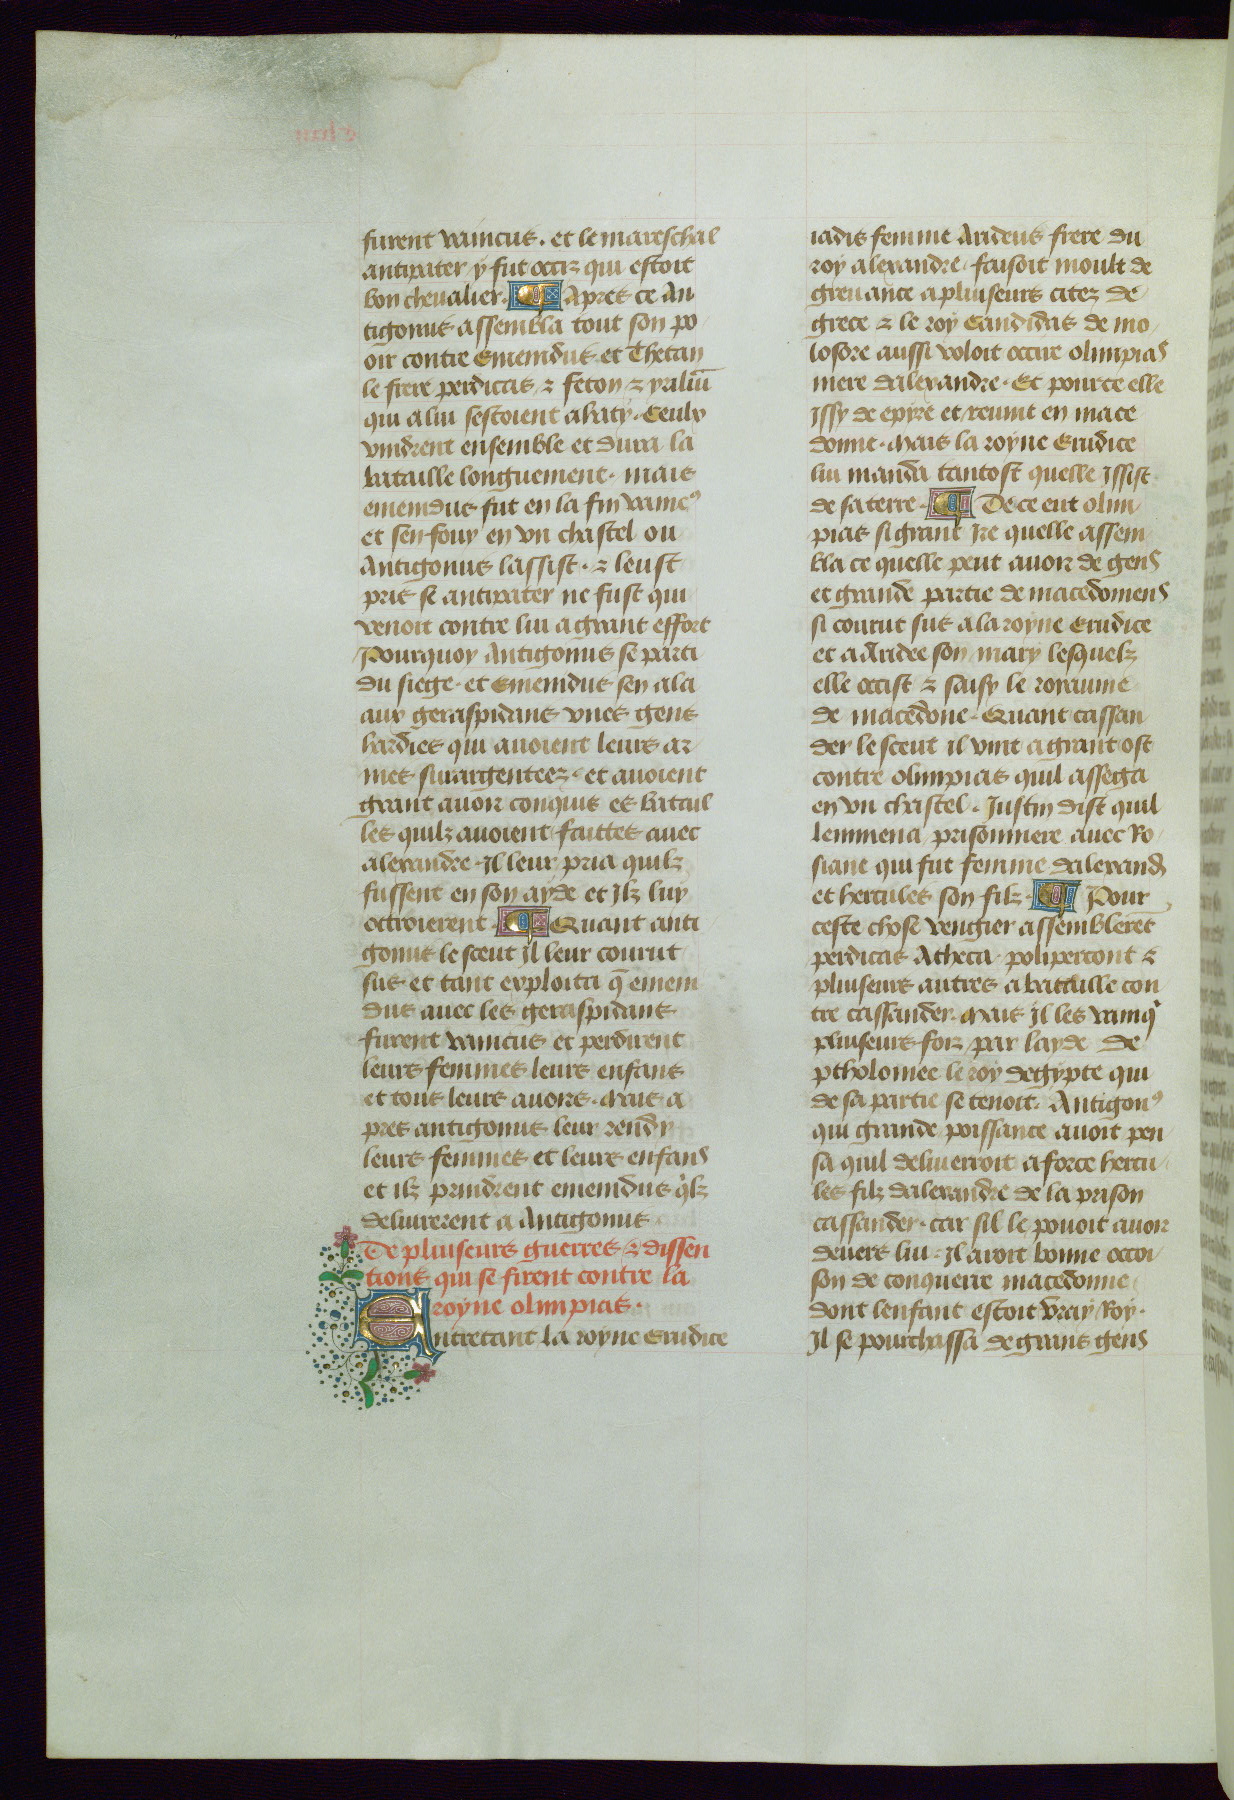 furent vaincus. et le mareschal
antipater y fut occiz qui estoit
bon cheualier. Apres ce An
tigonus assembla tout son po
oir contre Emenidus et Thetan
le frere perdicas, ⁊ feton ⁊ yraliū
qui a lui sestoient abaty. Ceulx
vindrent ensemble et dura la
bataille longuement. mais
emenidus fut en la fin vaincꝰ
et sen fouy en vn chastel ou
Antigonus lassist. ⁊ leust
pris se antipater ne fust qui
venoit contre lui a grant effort
Pourquoy Antigonus se parti
du siege. et Emenidus sen ala
aux geraspidans vnes gens
hardies qui auoient leurs ar
mes surargenteez. et auoient
grant auoir conquis es batail
les quilz auoient faittes auec
alexandre. Il leur pria quilz
fussent en son ayde et Ilz luy
octroierent. Quant anti
gonus le sceut Il leur courut
sus et tant exploita q̄ emeni
dus auec les geraspidans
furent vaincus et perdirent
leurs femmes leurs enfans
et tous leurs auoirs. Mais a
pres antigonus leur rendy
leurs femmes et leurs enfans
et ilz prindrent emenidus q̓lz
deliurerent a Antigonus.
De pluiseurs guerres ⁊ dissen
tions qui se firent contre la
royne olimpias.
Entretant la royne Erudice
iadis femme Arideus frere du
roy alexandre. faisoit moult de
greuance a pluiseurs citez de
grece ⁊ le roy Candidas de mo
losore aussi voloit occire olimpias
mere dalexandre. Et pource elle
Issy de epyre et reuint en mace
donne. Mais la royne Erudice
lui manda tantost quelle Issist
de sa terre. De ce eut olim
pias si grant Ire quelle assem
bla ce quelle peut auoir de gens
et grande partie de macedoniens
si courut sus a la royne Erudice
et a Aridee son mary lesquelz
elle occist ⁊ saisy le royaume
de macedone. Quant cassan
der le sceut il vint a grant ost
contre olimpias quil assega
en vn chastel. Justin dist quil
lemmena prisonniere auec Ro
siane qui fut femme dalexand̄
et hercules son filz. Pour
ceste chose vengier assemblerēt
perdicas Atheca. polipercont ⁊
pluiseurs autres a bataille con
tre cassander. Mais Il les vainq̓
pluiseurs foiz par layde de
ptholomee le roy degypte qui
de sa partie se tenoit. Antigonꝰ
qui grande poissance auoit pen
sa quil deliuerroit a force hercu
les filz dalexandre de la prison
cassander. car sil le pouoit auoir
deuers lui. Il auoit bonne occoi
son de conquerre macedonne
dont lenfant estoit vray Roy.
Il se pourchassa de grans gens